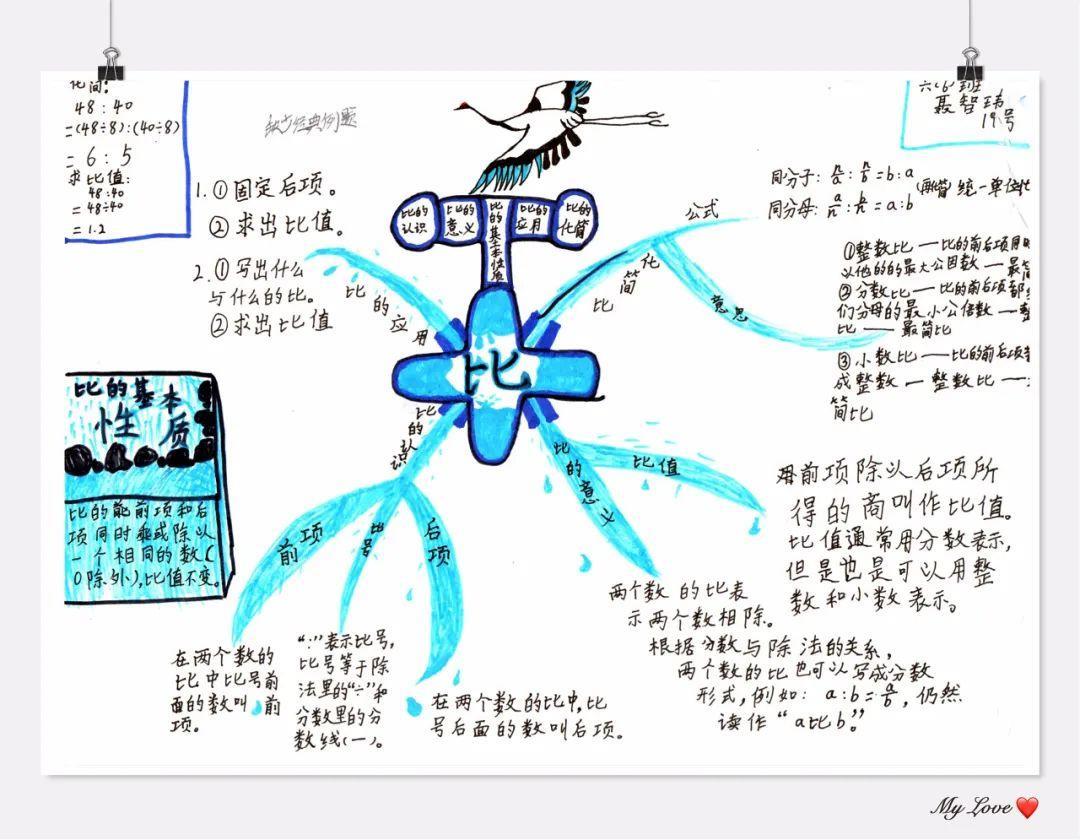 化简：
48：40
=(48÷8):(40÷8)
=6：5
求比值：
48:40
=48÷40
=1.2
缺少经典例题
六(6)班
聂智玮
19号
1.①固定后项。
②求出比值。
2.①写出什么
与什么的比。
②求出比值
比的认识
比的意义
比的基本性质
比的应用
比的化简
比
比的应用
化简比
公式
意思
同分子：
=b:a
同分母：
=a:b
统一单位
①整数比—比的前后项同
以他的的最大公因数—最简
②分数比—比的前后项都
们分母的最小公倍数—整
比——最简比
③小数比——比的前后项
成整数—整数比—
简比
比的基本
性质
比的前项和后
项同时乘或除以
一个相同的数(
0除外),比值不变。
比的认识
前项
比号
后项
比的意义
比值
前项除以后项所
得的商叫作比值。
比值通常用分数表示,
但是也是可以用整
数和小数表示。
两个数的比表
示两个数相除。
根据分数与除法的关系,
两个数的比也可以写成分数
形式,例如：a:b=a/b,仍然
读作“a比b”。
在两个数的
比中比号前
面的数叫前
项。
“:”表示比号,
比号等于除
法里的“÷”和
分数里的分
数线(—)。
在两个数的比中,比
号后面的数叫后项。
My Love